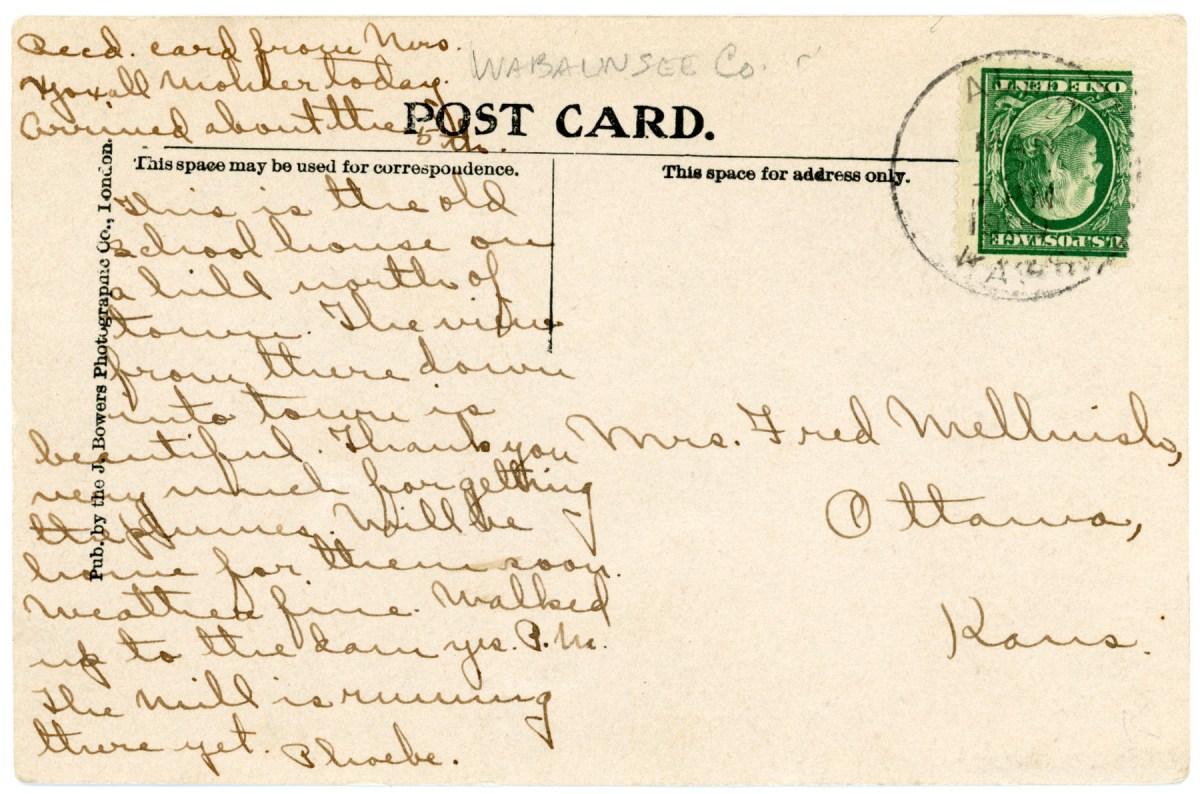 Recd. card from Mrs.
Yoxall Mohler today.
Arrived about the 5 th.
WABAUNSEE Co.
POST CARD.
This space may be used for correspondence.
This space for address only.
Pub. by the J. Bowers Photographic Co., London.
ONE CENT
U.S. POSTAGE
This is the old
school house on
a hill north of
town. The view
from there down
into town is
beautiful. Thank you
very much for getting
the plumes. Will be
home for them soon.
Weather fine. Walked
up to the dam yes. P.M.
The mill is running
there yet. Phoebe.
Mrs. Fred Mellinish,
Ottawa,
Kans.